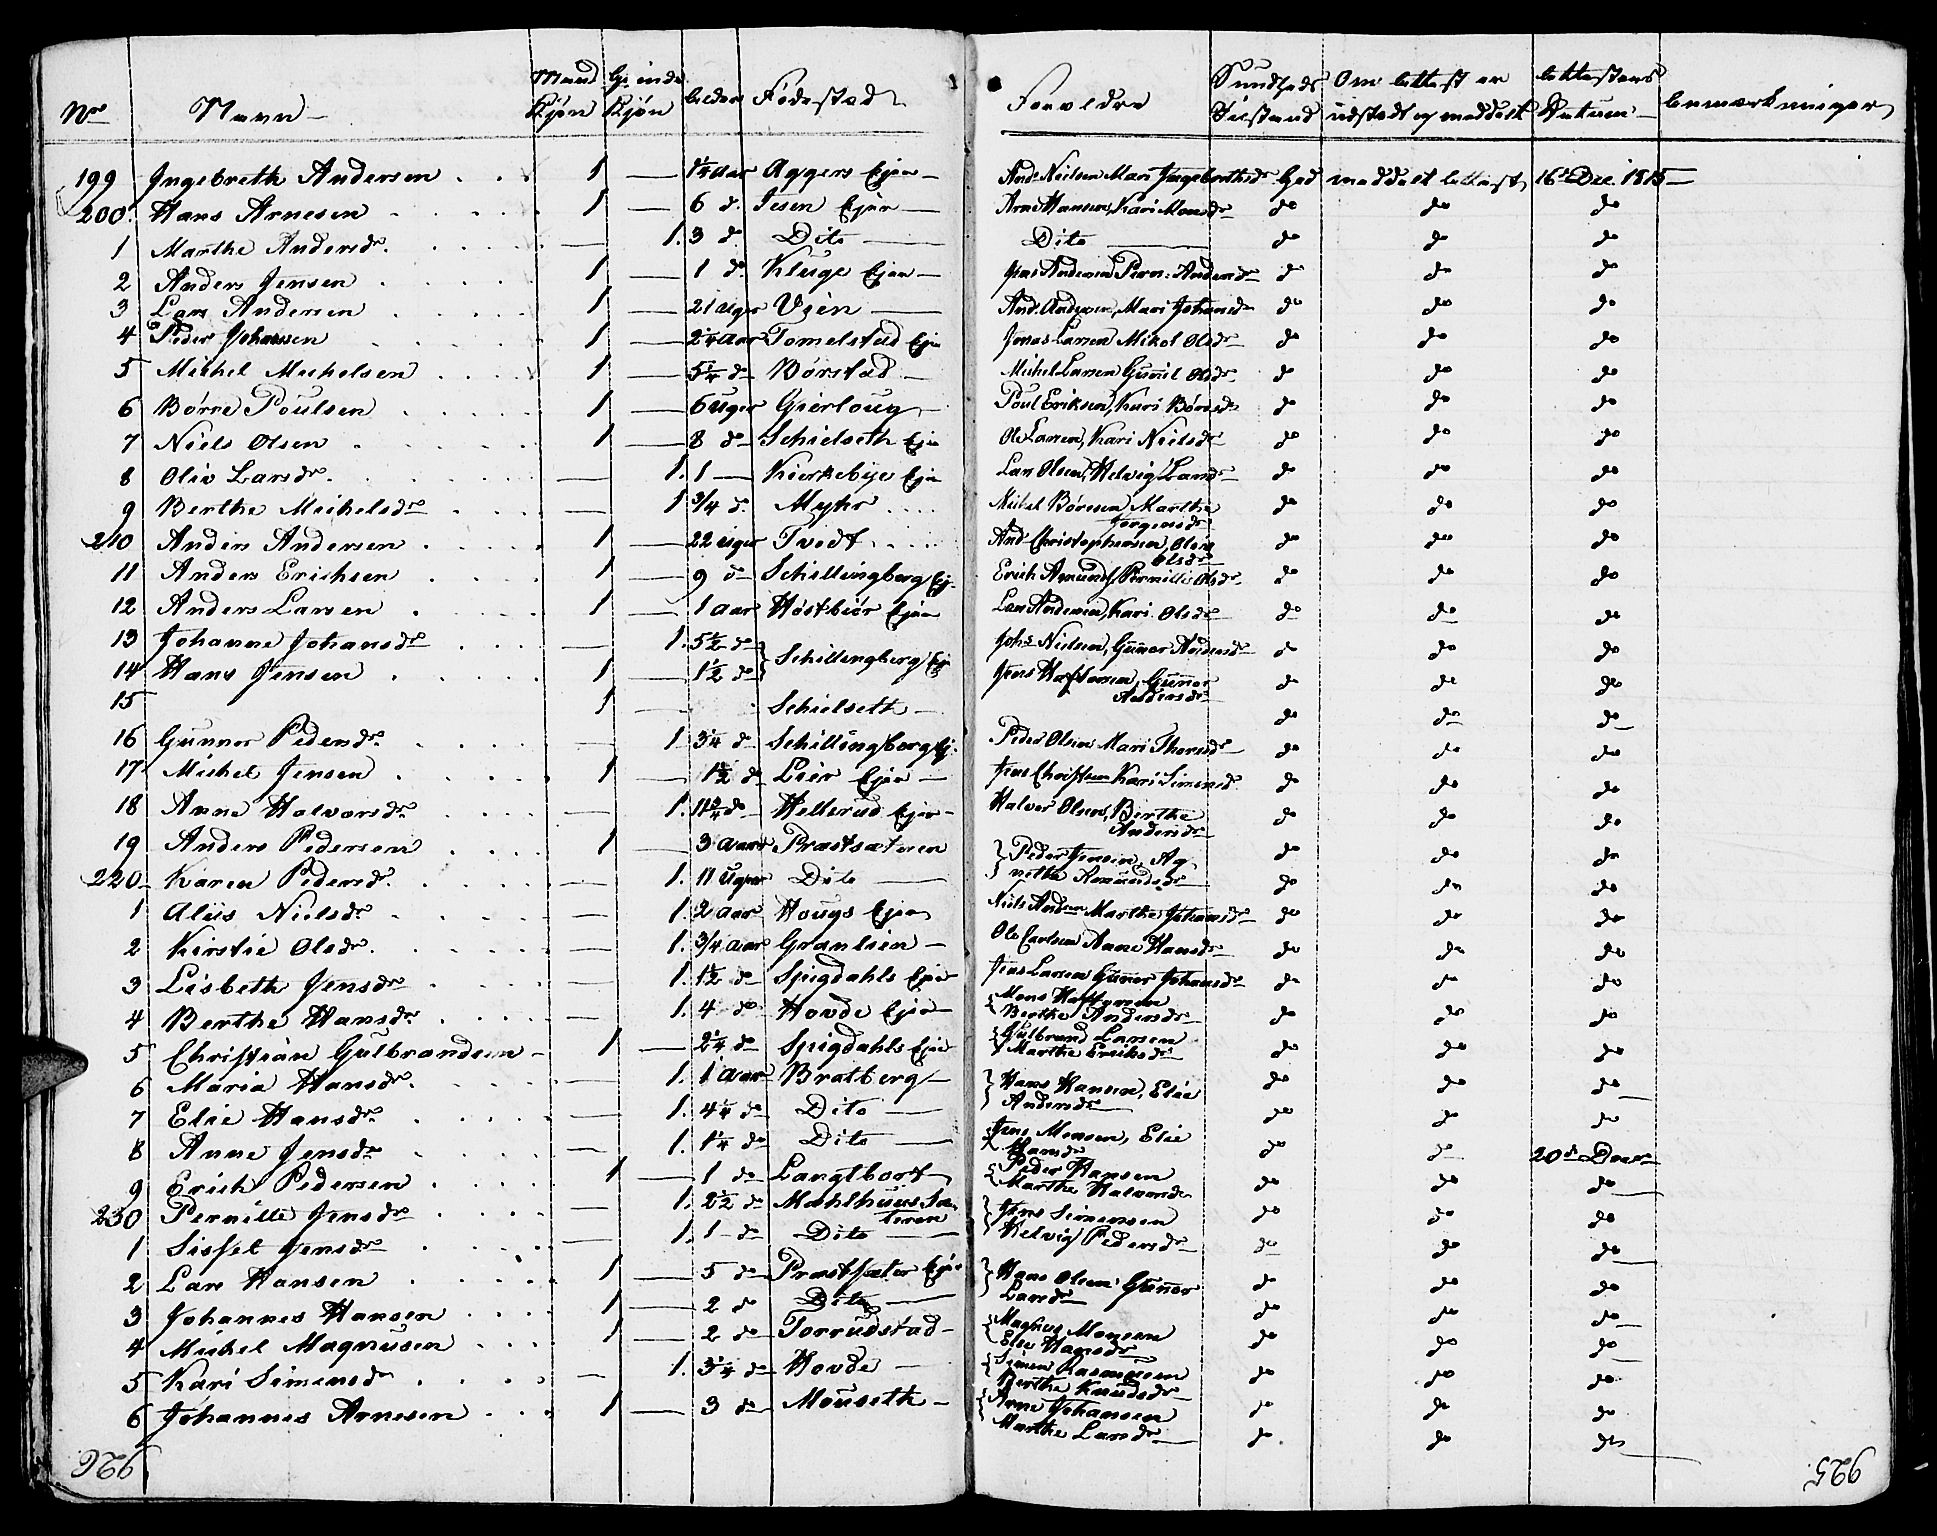 No Navn Mand Kjøn Qvinde Kjøn Alder Fødested Forældre Sundheds Tilstand Om Attest er udstedt og meddelt Attestens Datum Anmærkninger
199 Ingebreth Andersen 1 — 1¼ aar Aggers Ejer And: Nielsen Mari Ingebrethsdr God meddelt Attest 16de Dec. 1815
200. Hans Arnesen 1 — 6 do Ejer Arne Hansen, Kari do do do
1 Marthe Andersdr. — 1. 3 do Dito Dito do do do
2 Anders Jensen 1 — 1 do Kluge Ejer Jens Andersen Pern: Andersdr do do do
3 Lars Andersen 1 — 21 uger And. Andersen, Mari Johansdr do do do
4 Peder Johansen 1 — 2¼ aar Tomelstad Ejer Larsen Mikol Olsdr do do do
5 Michel Michelsen 1 — 5¼ do Børstad Michel Larsen Gunnil Olsdr do do do
6 Børre Poulsen 1 — 6 uger Gierloug Poul Eriksen, Kari Børresdr do do do
7 Niels Olsen 1 — 8 do Schielseth Ejer Ole Larsen, Kari Nielsdr do do do
8 Oliv Larsdr. — 1. 1 — Kierkebye Ejer Lars Olsen, Helvig Larsdr do do do
9 Berthe Michelsdr — 1 3/4 do Myhr Michel Børresen Marthe Jørgensdr do do do
210 Anders Andersen 1 — 22 uger Tvedt And Christophersen, Olea Olsdr do do do
11 Anders Erichsen 1 — 9 do Schillingberg Ej. Erich Amunds, Pernille Olsdr do do do
12 Anders Larsen 1 — 1 aar Høstbiør Ejer Lars Andersen, Kari Olsdr do do do
13 Johanne Johansdr — 1. 5½ do Schillingberg Ej Johs Nielsen, Gunnor Andersdr do do do
14 Hans Jensen 1 — 1½ do Jens Haftorsen, Gunnor Andersdr do do do
15 1 Schielseth do do do
16 Gunnor Pedersdr — 1 3¼ do Schillingberg Ej. Peder Olsen Mari Thoresdr do do do
17 Michel Jensen 1 — 1½ do Lier Ejer Jens Christensen Kari Simensdr do do do
18 Anne Halvorsdr — 1. do Hellerud Ejer Halvor Olsen, Berthe Andersdr do do do
19 Anders Pedersen 1 — 3 aar Præstsæteren Peder Jensen, Ag do do do
220 Karen Pedersdr. — 1. 11 Uger Dito nethe Amundsdr do do do
1 Aliis Nielsdr — 1. 2 aar Hougs Ejer Niels Andsen Marthe Johansdr do do do
2 Kirstie Olsdr. — 1. 3/4 aar Granlien Ole Carlsen Anne Hansdr do do do
3 Lisbeth Jensdr — 1. 1½ do Spigdahls Ejer Jens Larsen Gunnor Johansdr do do do
4 Berthe Hansdr — 1. 4 do Hovde Ejer Mons Haftorsen Berthe Andersdr do do do
5 Christian Gulbrandsen 1 — 2¼ do Spigdahls Ejer Gulbrand Larsen Marthe Eriksdr do do do
6 Maria Hansdr. — 1. 1 aar Bratberg Hans Hansen, Elie do do do
7 Elie Hansdr — 1. 4¼ do Dito Andersdr do do do
8 Anne Jensdr — 1. 1¼ do Dito Jens Monsen, Elie Hansdr do do 20de Decr
9 Erich Pedersen 1 — 1 do Langtbort Peder Hansen Marthe Halvorsdr do do do
230 Pernille Jensdr — 1. 2½ do Mahlhuus Sæteren Jens Simensen do do do
1 Sissel Jensdr — 1. 1 do Dito Helvig Pedersdr do do do
2 Lars Hansen 1 — 5 do Præstsæter Ejer Hans Olsen Gunnor do do do
3 Johannes Hansen 1 — 2 do Dito Larsdr do do do
4 Michel Magnusen 1 — 2 do Torrudstad Magnus Monsen Elie Hansdr do do do
5 Kari Simensdr — 1. 3¼ do Hovde Simen Rasmusen Berthe Knudsdr do do do
6 Johannes Arnesen 1 — 3 do Mouseth Arne Johansen Marthe Larsdr do do do
926
925